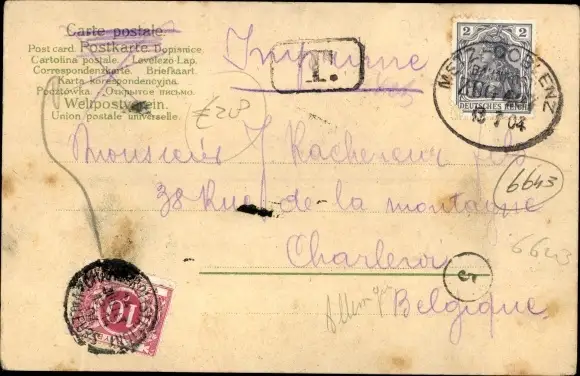 Carte postale.
Post card. Postkarte Dopisnice.
Cartolina postale. Levelezo-Lap.
Correspondenzkarte. Briefkaart.
Karta korespondencyjna.
Pocztówka. Открытое письмо.
Weltpostverein.
Union postale universelle.
Imprimé
T.
2 2
DEUTSCHES REICH
METZ-COBLENZ
13 7 04
£20
Monsieur J Kacheneur fils
38 Rue de la montagne
6643
6643
Charleroi
Belgique
10